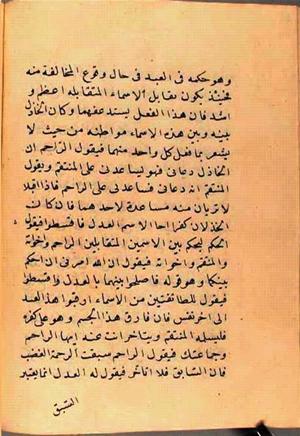 وهو حكمه فى العبد فى حال وقوع المخالفة منه
فحينئذ يكون تقابل الاسماء المتقابله اعظم و
اشد فان هذا الفعل يستدعيهما وكان اتخاذل
بينه وبين هذه الاسماء مواطنه من حيث لا
يشعر بما فعل كل واحد منهما فيقول الراحم ان
الخاذل دعانى فهو يساعدنى على المنتقم ويقول
المنتقم انه دعانى فساعدنى على الراحم فاذا اقبلا
لا تريان منه مساعدة لاحدهما فان كانت
الخذلان كفرا جا الاسم العدل فاقسط فيقول
الحكم ليحكم بين الاسمين المتقابلين الراحم واخواته
والمنتقم واخواته فيقول ان الله امرنى ان احكم
بينكما وهو قوله فاصلحوا بينهما بالعدل فاقسطوا
فيقول للطائفتين من الاسماء ارقبوا هذا العبد
الى اخر نفس فان فارق هذا الجسم وهو على كفره
فليسله المنتقم ويتاخر انت عنه ايها الراحم
وجماعتك فيقول الراحم سبقت الرحمة الغضب
فان السابق فلا اتاخر فيقول له العدل انما يعتبر
السبق